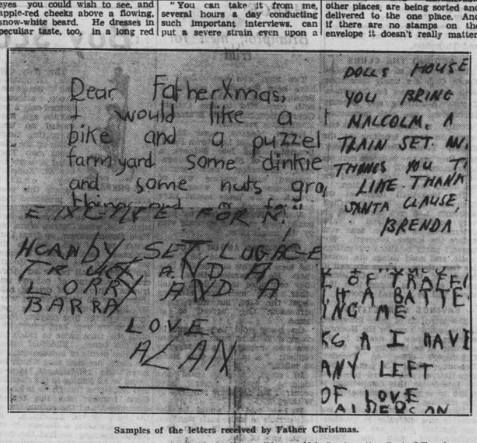 eyes you could wish to see, and
apple-red cheeks above a flowing,
snow-white beard. He dresses in
peculiar taste, too, in a long red
"You can take it from me,
several hours a day conducting
such important interviews, can
put a severe strain even upon a
other places, are being sorted and
delivered to the one place. And
if there are no stamps on the
envelope it doesn't really matter
Dear Father Xmas,
I would like a
bike and a puzzel
farm yard some dinkie
and some nuts gra
things and
FOR
HCANDY SET LUGAGE
TRUCK AND A
LORRY AND A
BARRA
LOVE
ALAN
DOLLS HOUSE
YOU BRING
MALCOLM, A
TRAIN SET. AN
THINGS YOU TI
LIKE. THANK
SANTA CLAUSE,
BRENDA
OF
A BATTE
ING ME
A I HAVE
ANY LEFT
OF LOVE
Samples of the letters received by Father Christmas.